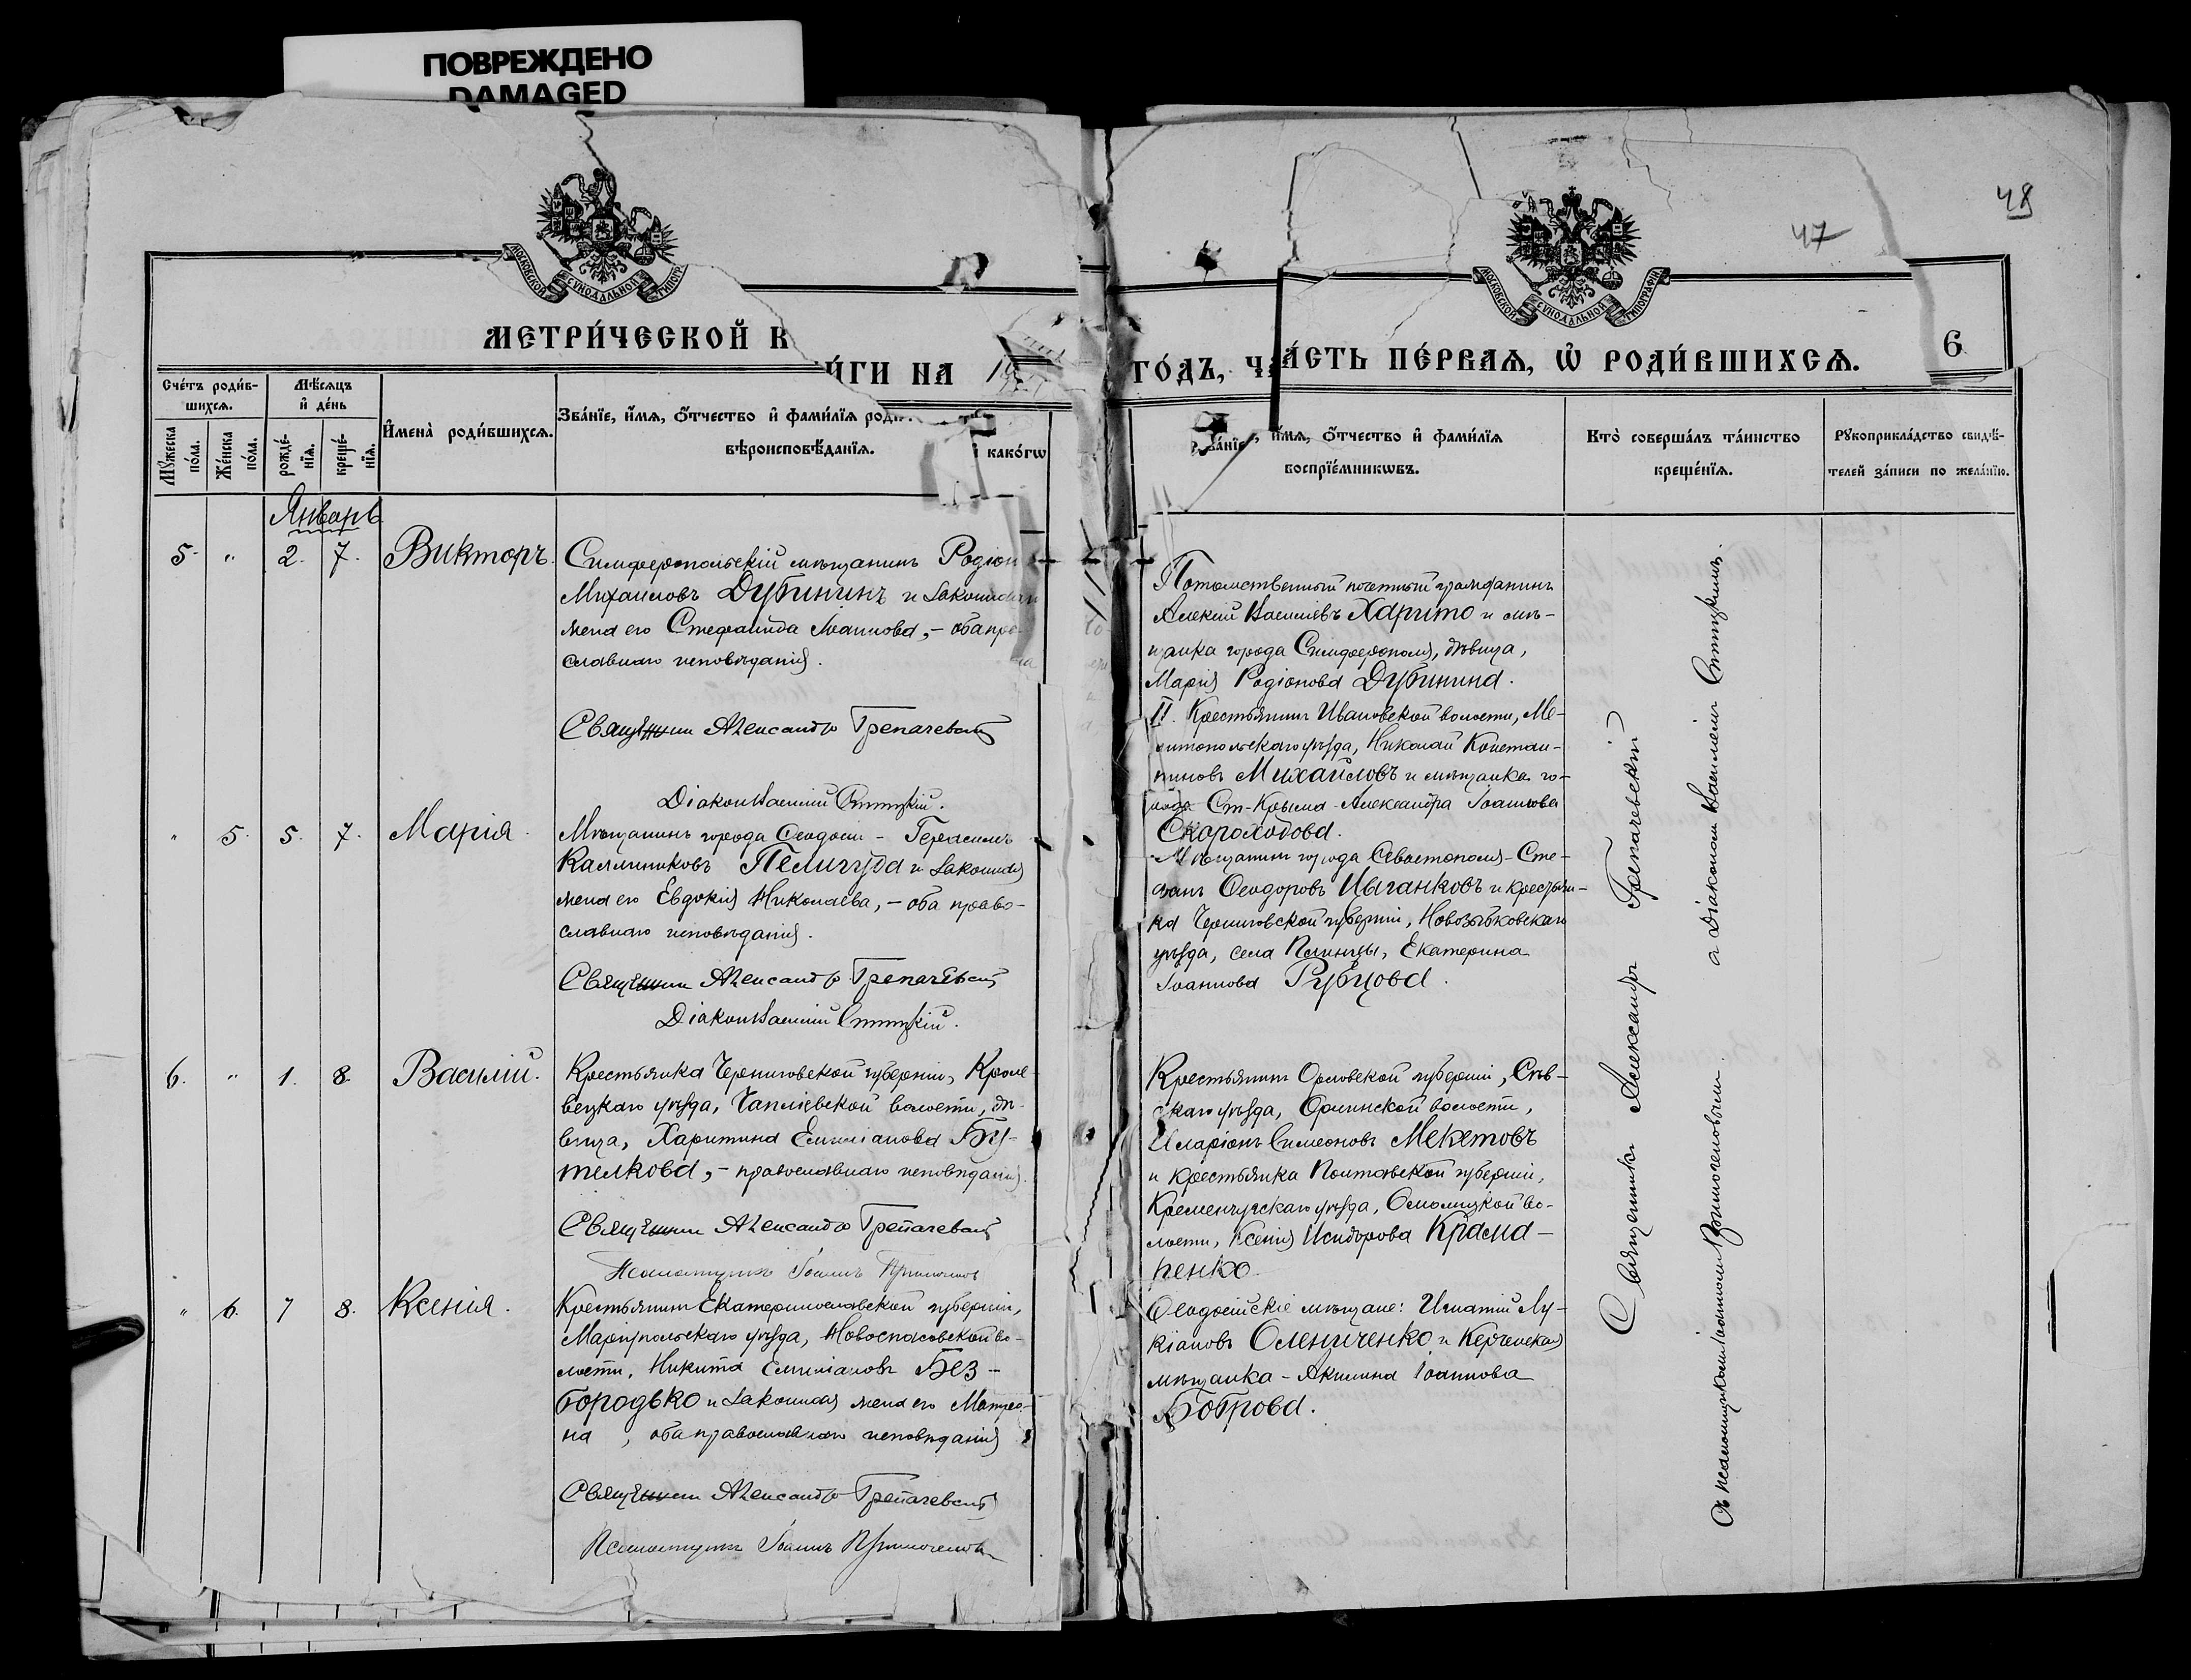 ПОВРЕЖДЕНО
DAMAGED
48
47
МОСКОВСКОЙ СѴНОДАЛЬНОЙ ТИПОГР
МОСКОВСКОЙ СѴНОДАЛЬНОЙ ТИПОГРАФІИ
МЕТРИ́ЧЕСКОЙ К
И́ГИ НА
ГО́ДЪ, ЧА́СТЬ ПЕ́РВАЯ, Ѡ҆ РОДИ́ВШИХСЯ.
6
Сче́тъ роди́в-
шихся.
Мѣ́сяцъ
и҆ де́нь
Мꙋ́жеска
по́ла.
Же́нска
по́ла.
рожде́-
нїя.
креще́-
нїя.
И҆мена̀ роди́вшихся.
Зва́нїе, и҆́мя, ѻ҆́тчество и҆ фами́лїя роди
како́гѡ
вѣроисповѣ́данїя.
Зва́нїе, и҆́мя, ѻ҆́тчество и҆ фами́лїя
воспрїе́мникѡвъ.
Кто̀ соверша́лъ та́инство
креще́нїя.
Рꙋкоприкла́дство свидѣ́-
телей за́писи по жела́нїю.
Январь
5. " 2. 7. Викторъ.
Симферопольскій мѣщанинъ Родіон
Михаиловъ Дубининъ и законная
жена его Стефанида Іоаннова, – оба пра-
славнаго исповѣданія.
Священникъ Александръ Трепачевскій
Діаконъ Василій
Потомственный почетный гражданинъ
Алексій Василіевъ Харито и мѣ-
щанка города Симферополя, дѣвица,
Марія Родіонова Дубинина.
II. Крестьянинъ Ивановской волости, Ме-
литопольскаго уѣзда, Николай Констан-
тиновъ Михайловъ и мѣщанка го-
рода Ст-Крыма Александра Іоаннова
Скороходова.
" 5. 5. 7. Марія.
Мѣщанинъ города Ѳеодосіи – Герасимъ
Каллиниковъ Пеличуда и законная
жена его Евдокія Николаева, – оба право-
славнаго исповѣданія.
Священникъ Александръ Трепачевскій
Діаконъ Василій
Мѣщанинъ города Севастополя – Сте-
фанъ Ѳеодоровъ Цыганковъ и крестьян-
ка Черниговской губерніи, Новозыбковскаго
уѣзда, села Екатерина
Іоаннова Рубцова.
6. " 1. 8. Василій.
Крестьянка Черниговской губерніи, Кроле-
вецкаго уѣзда, Чаплієвской волости, дѣ-
вица, Харитина Емиліанова Бу-
телкова, – православнаго исповѣданія.
Священникъ Александръ Трепачевскій
Псаломщикъ Іоаннъ
Крестьянинъ Орловской губерніи, Сѣв-
скаго уѣзда, Орлинской волости,
Иларіонъ Симеоновъ Мекетовъ
и крестьянка Полтавской губерніи,
Кременчугскаго уѣзда, во-
лости, Ксенія Исидорова Крама-
ренко
" 6. 7 8. Ксенія.
Крестьянинъ Екатеринославской губерніи,
Маріупольскаго уѣзда, Новоспасовской во-
лости, Никита Емиліановъ Без-
бородько и законная жена его Матро-
на , оба православнаго исповѣданія
Священникъ Александръ Трепачевскій
Псаломщикъ Іоаннъ
Ѳеодосійскіе мѣщане: Игнатій Лу-
кіановъ Олениченко и Керченская
мѣщанка – Акилина Іоаннова
Боброва.
Священникъ Александръ Трепачевскій
съ псаломщикомъ Іоанномъ
а Діакономъ Василіемъ